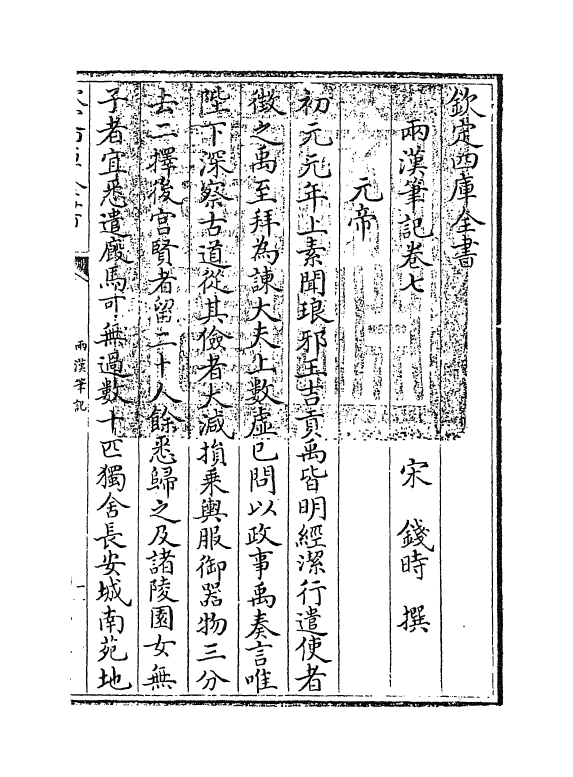 欽定四庫全書
兩漢筆記卷七
宋 錢時 撰
元帝
初元元年上素聞琅邪王吉貢禹皆明經潔行遣使者
徵之禹至拜為諫大夫上數虛己問以政事禹奏言唯
陛下深察古道從其儉者大減損乗輿服御器物三分
去二擇後宮賢者留二十人餘悉歸之及諸陵園女無
子者宜悉遣廐馬可無過數十匹獨舍長安城南苑地
兩漢筆記
一